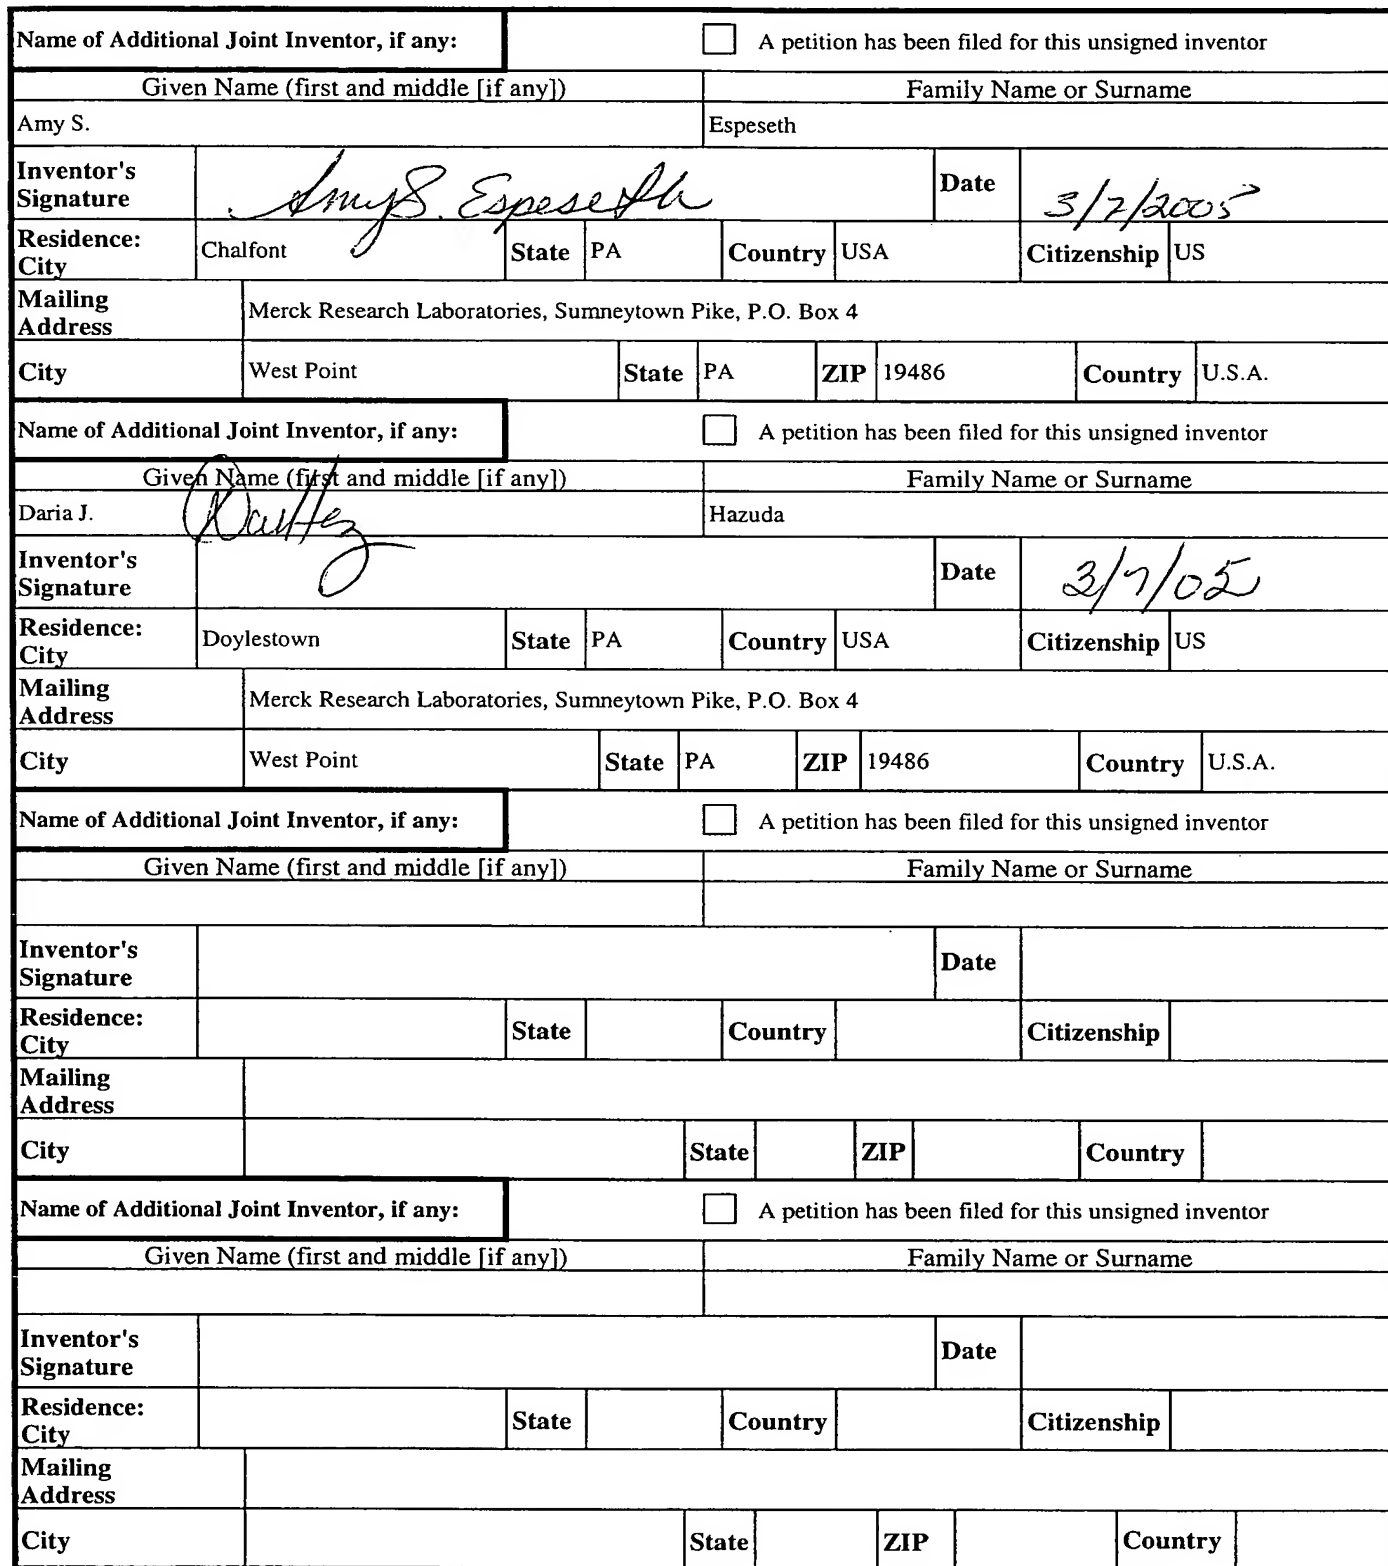 Name of Additional Joint Inventor, if any: A petition has been filed for this unsigned inventor
Given Name (first and middle [if any]) Family Name or Surname
Amy S. Espeseth
Inventor's Signature Amy S. Espeseth Date 3/7/2005
Residence: City Chalfont State PA Country USA Citizenship US
Mailing Address Merck Research Laboratories, Sumneytown Pike, P.O. Box 4
City West Point State PA ZIP 19486 Country U.S.A.
Name of Additional Joint Inventor, if any: A petition has been filed for this unsigned inventor
Given Name (first and middle [if any]) Family Name or Surname
Daria J. Hazuda
Inventor's Signature Date 3/7/05
Residence: City Doylestown State PA Country USA Citizenship US
Mailing Address Merck Research Laboratories, Sumneytown Pike, P.O. Box 4
City West Point State PA ZIP 19486 Country U.S.A.
Name of Additional Joint Inventor, if any: A petition has been filed for this unsigned inventor
Given Name (first and middle [if any]) Family Name or Surname
Inventor's Signature Date
Residence: City State Country Citizenship
Mailing Address
City State ZIP Country
Name of Additional Joint Inventor, if any: A petition has been filed for this unsigned inventor
Given Name (first and middle [if any]) Family Name or Surname
Inventor's Signature Date
Residence: City State Country Citizenship
Mailing Address
City State ZIP Country